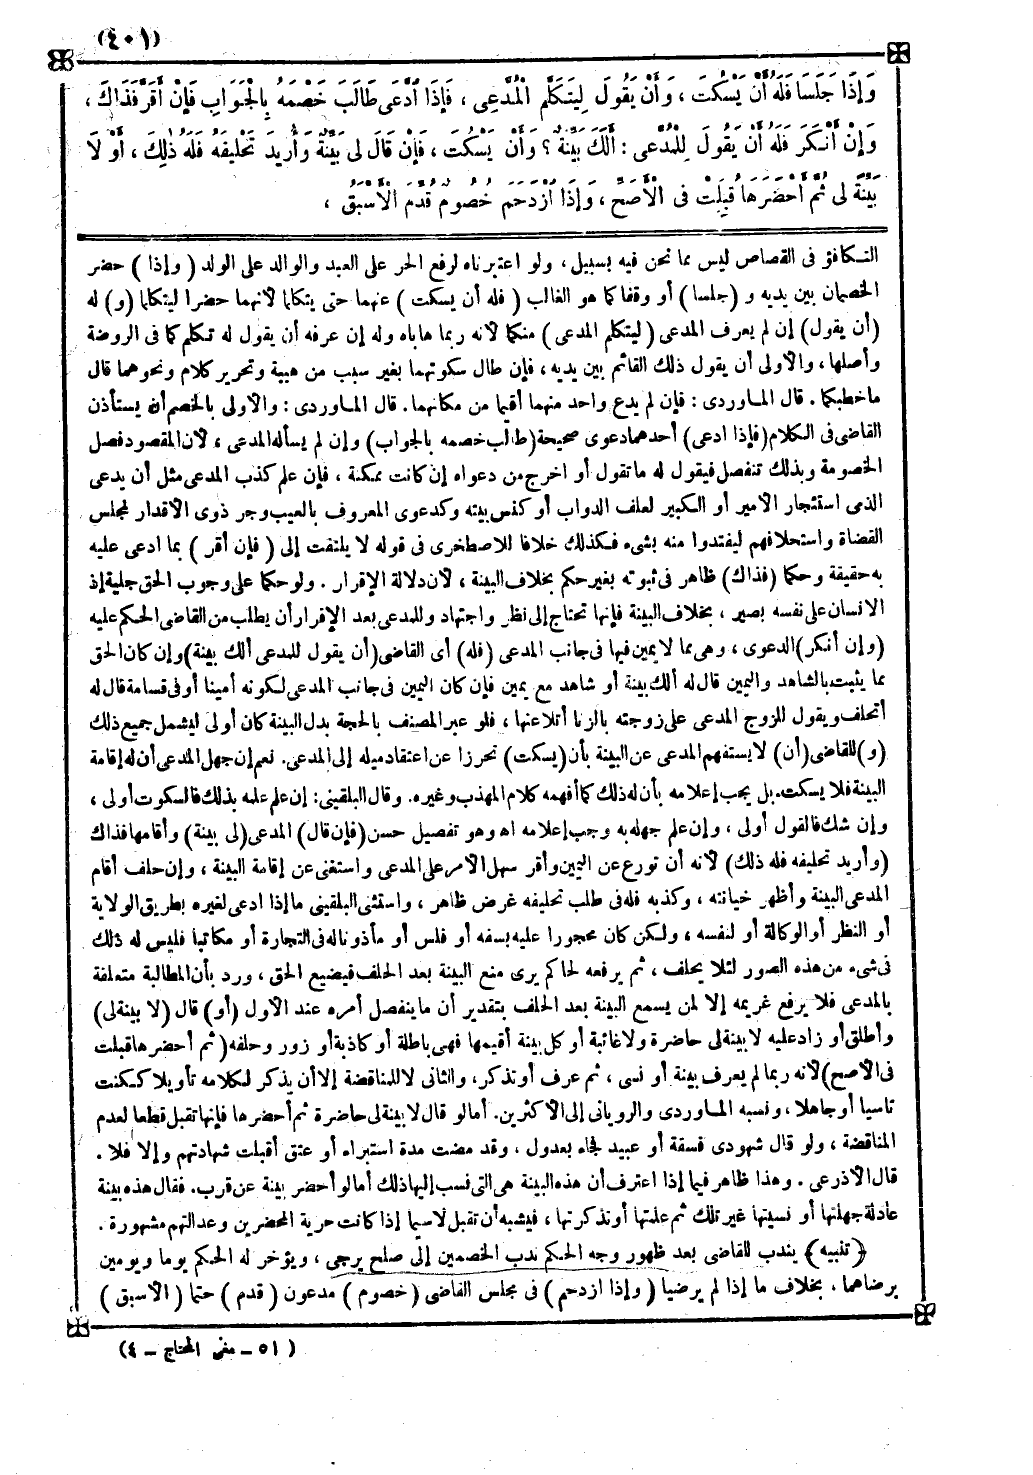 (٤٠١)
وَإِذَا جَلَسَا فَلَهُ أَنْ يَسْكُتَ ، وَأَنْ يَقُولَ لِيَتَكَلَّمِ الْمُدَّعِى ، فَإِذَا ادَّعَى طَالَبَ خَصْمَهُ بِالْجَوَابِ فَإِنْ أَقَرَّ فَذَاكَ ،
وَإِنْ أَنْكَرَ فَلَهُ أَنْ يَقُولَ لِلْمُدَّعِى : أَلَكَ بَيِّنَةٌ ؟ وَأَنْ يَسْكُتَ ، فَإِنْ قَالَ لِى بَيِّنَةٌ وَأُرِيدَ تَحْلِيفَهُ فَلَهُ ذٰلِكَ ، أَوْ لَا
بَيِّنَةَ لِى ثُمَّ أَحْضَرَهَا قُبِلَتْ فى الْأَصَحِّ ، وَإِذَا ازْدَحَمَ خُصُومٌ قُدِّمَ الْأَسْبَقُ ،
التكافؤ فى القصاص ليس مما نحن فيه بسبيل ، ولو اعتبرناه لرفع الحر على العبد والوالد على الولد ( وإذا ) حضر
الخصمان بين يديه و (جلسا) أو وقفا كما هو الغالب ( فله أن يسكت ) عنهما حتى يتكلما لأنهما حضرا ليتكلما (و) له
(أن يقول) إن لم يعرف المدعى (ليتكلم المدعى) منكما لأنه ربما هاباه وله إن عرفه أن يقول له تكلم كما فى الروضة
وأصلها ، والأولى أن يقول ذلك القائم بين يديه ، فإن طال سكوتهما بغير سبب من هيبة وتحرير كلام ونحوهما قال
ما خطبكما . قال الماوردى : فإن لم يدع واحد منهما أقيما من مكانهما. قال الماوردى : والأولى بالخصم أن يستأذن
القاضى فى الكلام (فإذا ادعى) أحدهما دعوى صحيحة (طالب خصمه بالجواب) وإن لم يسأله المدعى ، لأن المقصود فصل
الخصومة وبذلك تنفصل فيقول له ما تقول أو اخرج من دعواه إن كانت ممكنة ، فإن علم كذب المدعى مثل أن يدعى
الذمى استئجار الأمير أو الكبير لعلف الدواب أو كنس بيته وكدعوى المعروف بالعيب وجر ذوى الأقدار لمجلس
القضاة واستحلافهم ليفتدوا منه بشىء فكذلك خلافا للاصطخرى فى قوله لا يلتفت إلى ( فإن أقر ) بما ادعى عليه
به حقيقة وحكما (فذاك) ظاهر فى ثبوته بغير حكم بخلاف البينة ، لأن دلالة الإقرار . ولو حكما على وجوب الحق جلية إذ
الانسان على نفسه بصير ، بخلاف البينة فإنها تحتاج إلى نظر واجتهاد وللمدعى بعد الإقرار أن يطلب من القاضى الحكم عليه
(وإن أنكر) الدعوى ، وهى مما لا يمين فيها فى جانب المدعى (فله) أى القاضى (أن يقول للمدعى ألك بينة) وإن كان الحق
مما يثبت بالشاهد واليمين قال له ألك بينة أو شاهد مع يمين فإن كان اليمين فى جانب المدعى لكونه أمينا أو فى قسامة قال له
أتحلف ويقول للزوج المدعى على زوجته بالزنا أتلاعنها ، فلو عبر المصنف بالحجة بدل البينة كان أولى ليشمل جميع ذلك
(و) للقاضى (أن) لا يستفهم المدعى عن البينة بأن (يسكت) تحرزا عن اعتقاد ميله إلى المدعى. نعم إن جهل المدعى أن له إقامة
البينة فلا يسكت. بل يجب إعلامه بأن له ذلك كما أفهمه كلام المهذب وغيره. وقال البلقينى : إن علم علمه بذلك فالسكوت أولى ،
وإن شك فالقول أولى ، وإن علم جهله به وجب إعلامه اه وهو تفصيل حسن (فإن قال) المدعى (لى بينة) وأقامها فذاك
(وأريد تحليفه فله ذلك) لأنه أن تورع عن اليمين وأقر سهل الأمر على المدعى واستغنى عن إقامة البينة ، وإن حلف أقام
المدعى البينة وأظهر خيانته ، وكذبه فله فى طلب تحليفه غرض ظاهر ، واستثنى البلقينى ما إذا ادعى لغيره بطريق الولاية
أو النظر أو الوكالة أو لنفسه ، ولكن كان محجورا عليه بسفه أو فلس أو مأذونا له فى التجارة أو مكاتبا فليس له ذلك
فى شىء من هذه الصور لئلا يحلف ، ثم يرفعه لحاكم يرى منع البينة بعد الحلف فيضيع الحق ، ورد بأن المطالبة متعلقة
بالمدعى فلا يرفع غريمه إلا لمن يسمع البينة بعد الحلف بتقدير أن ما ينفصل أمره عند الأول (أو) قال (لا بينة لى)
وأطلق أو زاد عليه لا بينة لى حاضرة ولا غائبة أو كل بينة أقيمها فهى باطلة أو كاذبة أو زور وحلفه (ثم أحضرها قبلت
فى الأصح) لأنه ربما لم يعرف بينة أو نسى ، ثم عرف أو تذكر، والثانى لا للمناقضة إلا أن يذكر لكلامه تأويلا ككنت
ناسيا أو جاهلا ، ونسبه الماوردى والرويانى إلى الأكثرين. أما لو قال لا بينة لى حاضرة ثم أحضرها فإنها تقبل قطعا لعدم
المناقضة ، ولو قال شهودى فسقة أو عبيد فجاء بعدول ، وقد مضت مدة استبراء أو عتق أقبلت شهادتهم وإلا فلا .
قال الأذرعى . وهذا ظاهر فيما إذا اعترف أن هذه البينة هى التى نسب إليها ذلك أما لو أحضر بينة عن قرب. فقال هذه بينة
عادلة جهلتها أو نسيتها غير تلك ثم علمتها أو تذكرتها ، فيشبه أن تقبل لا سيما إذا كانت حرية المحضرين وعدالتهم مشهورة .
﴿ تنبيه ﴾ يندب للقاضى بعد ظهور وجه الحكم ندب الخصمين إلى صلح يرجى ، ويؤخر له الحكم يوما ويومين
برضاهما ، بخلاف ما إذا لم يرضيا ( وإذا ازدحم ) فى مجلس القاضى ( خصوم ) مدعون ( قدم ) حتما ( الأسبق )
( ٥١ ــ مغنى المحتاج ــ ٤ )